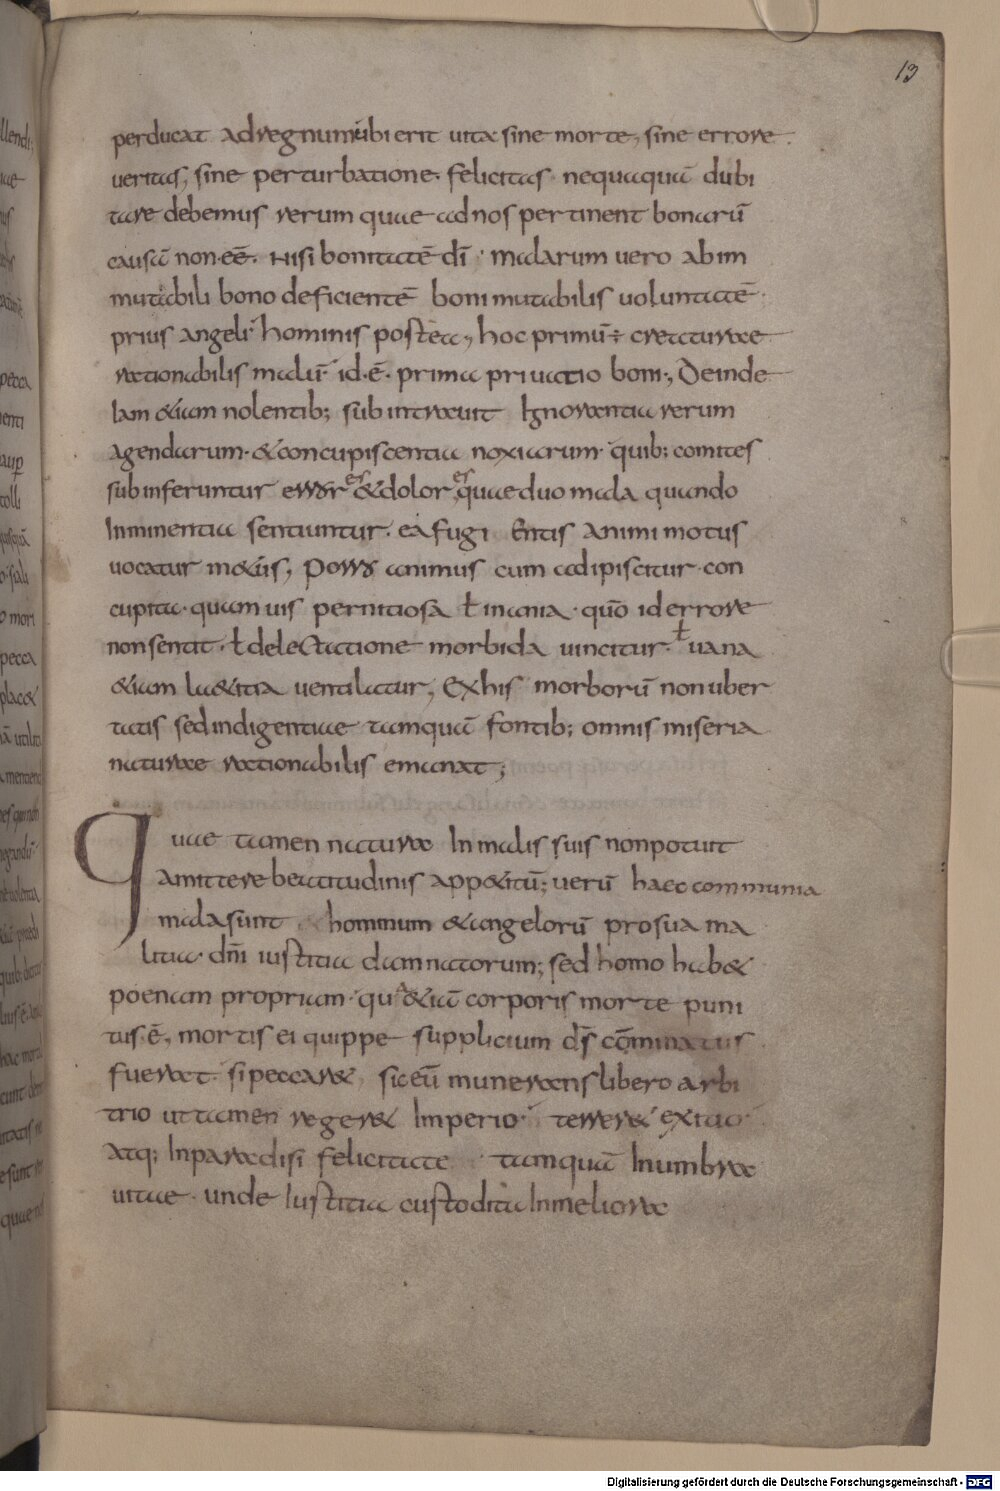 13
perducat ad regnum ubi erit uita sine morte, sine errore.
ueritas, sine perturbatione. felicitas nequaquā dubi
tare debemus rerum quae ad nos pertinent bonarū
causā non eē. nisi bonitatē dī. malarum uero ab im
mutabili bono deficientē boni mutabilis uoluntatē.
prius angeli hominis postea, hoc primū ÷ creaturae
rationabilis malū id.ē. prima priuatio boni, Deinde
Iam &iam nolentib; subintrauit Ignorantia rerum
agendarum. & concupiscentia noxiarum. quib; comites
subinferuntur error er & dolor er quae duo mala quando
Inminentia sentiuntur. ea fugientis animi motus
uocatur m&us, Porro animus cum adipiscitur con
cupita. quamuis pernitiosa ł inania. quō id errore
non sentit. ł delectatione morbida uincitur. ł uana
&iam la&itia uentilatur, Ex his morborū non uber
tatis sed indigentiae tamquā fontib; omnis miseria
naturae rationabilis emanat;
Quae tamen natura In malis suis non potuit
amittere beatitudinis app&itū; uerū haec communia
mala sunt hominum & angelorū pro sua ma
litia. dn̄i iustitia damnatorum; sed homo hab&
poenam propriam. qua &iā corporis morte puni
tus.ē, mortis ei quippe supplicium d̄s cōminatus
fuerat. si peccar&, sic eū munerans libero arbi
trio ut tamen reger& Imperio. terrer& exitio.
atq; In paradisi felicitate tamquā In umbra
uitae. unde Iustitia custodita In meliora
Digitalisierung gefördert durch die Deutsche Forschungsgemeinschaft - DFG